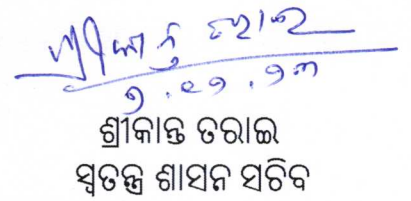 ଶ୍ରୀକାନ୍ତ ତରାଇ
୨.୧୨.୨୩
ଶ୍ରୀକାନ୍ତ ତରାଇ
ସ୍ୱତନ୍ତ୍ର ଶାସନ ସଚିବ